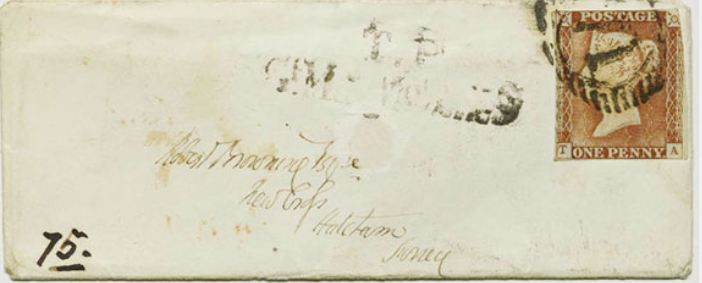 POSTAGE
T A
ONE PENNY
T.P
Robert Browning Esqre
New Cross
Hatcham
Surrey
75.